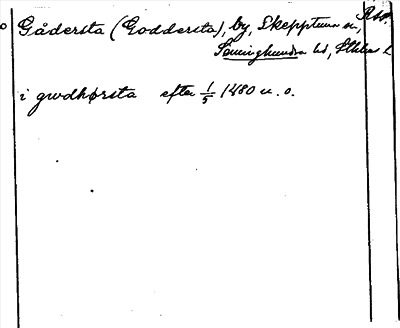 Gådersta (Goddersta), by, Skepptuna sn,
Seminghundra hd, Sthlms l.
i gwdhørsta efter 1/5 1480 u. o.